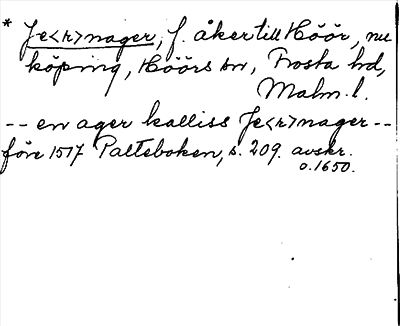 * Je<r>nager, f. åker till Höör, nu
köping, Höörs sn, Frosta hd,
Malm. l.
-- en ager kalliss Je<r>nager --
före 1517 Palteboken, s. 209. avskr.
o. 1650.